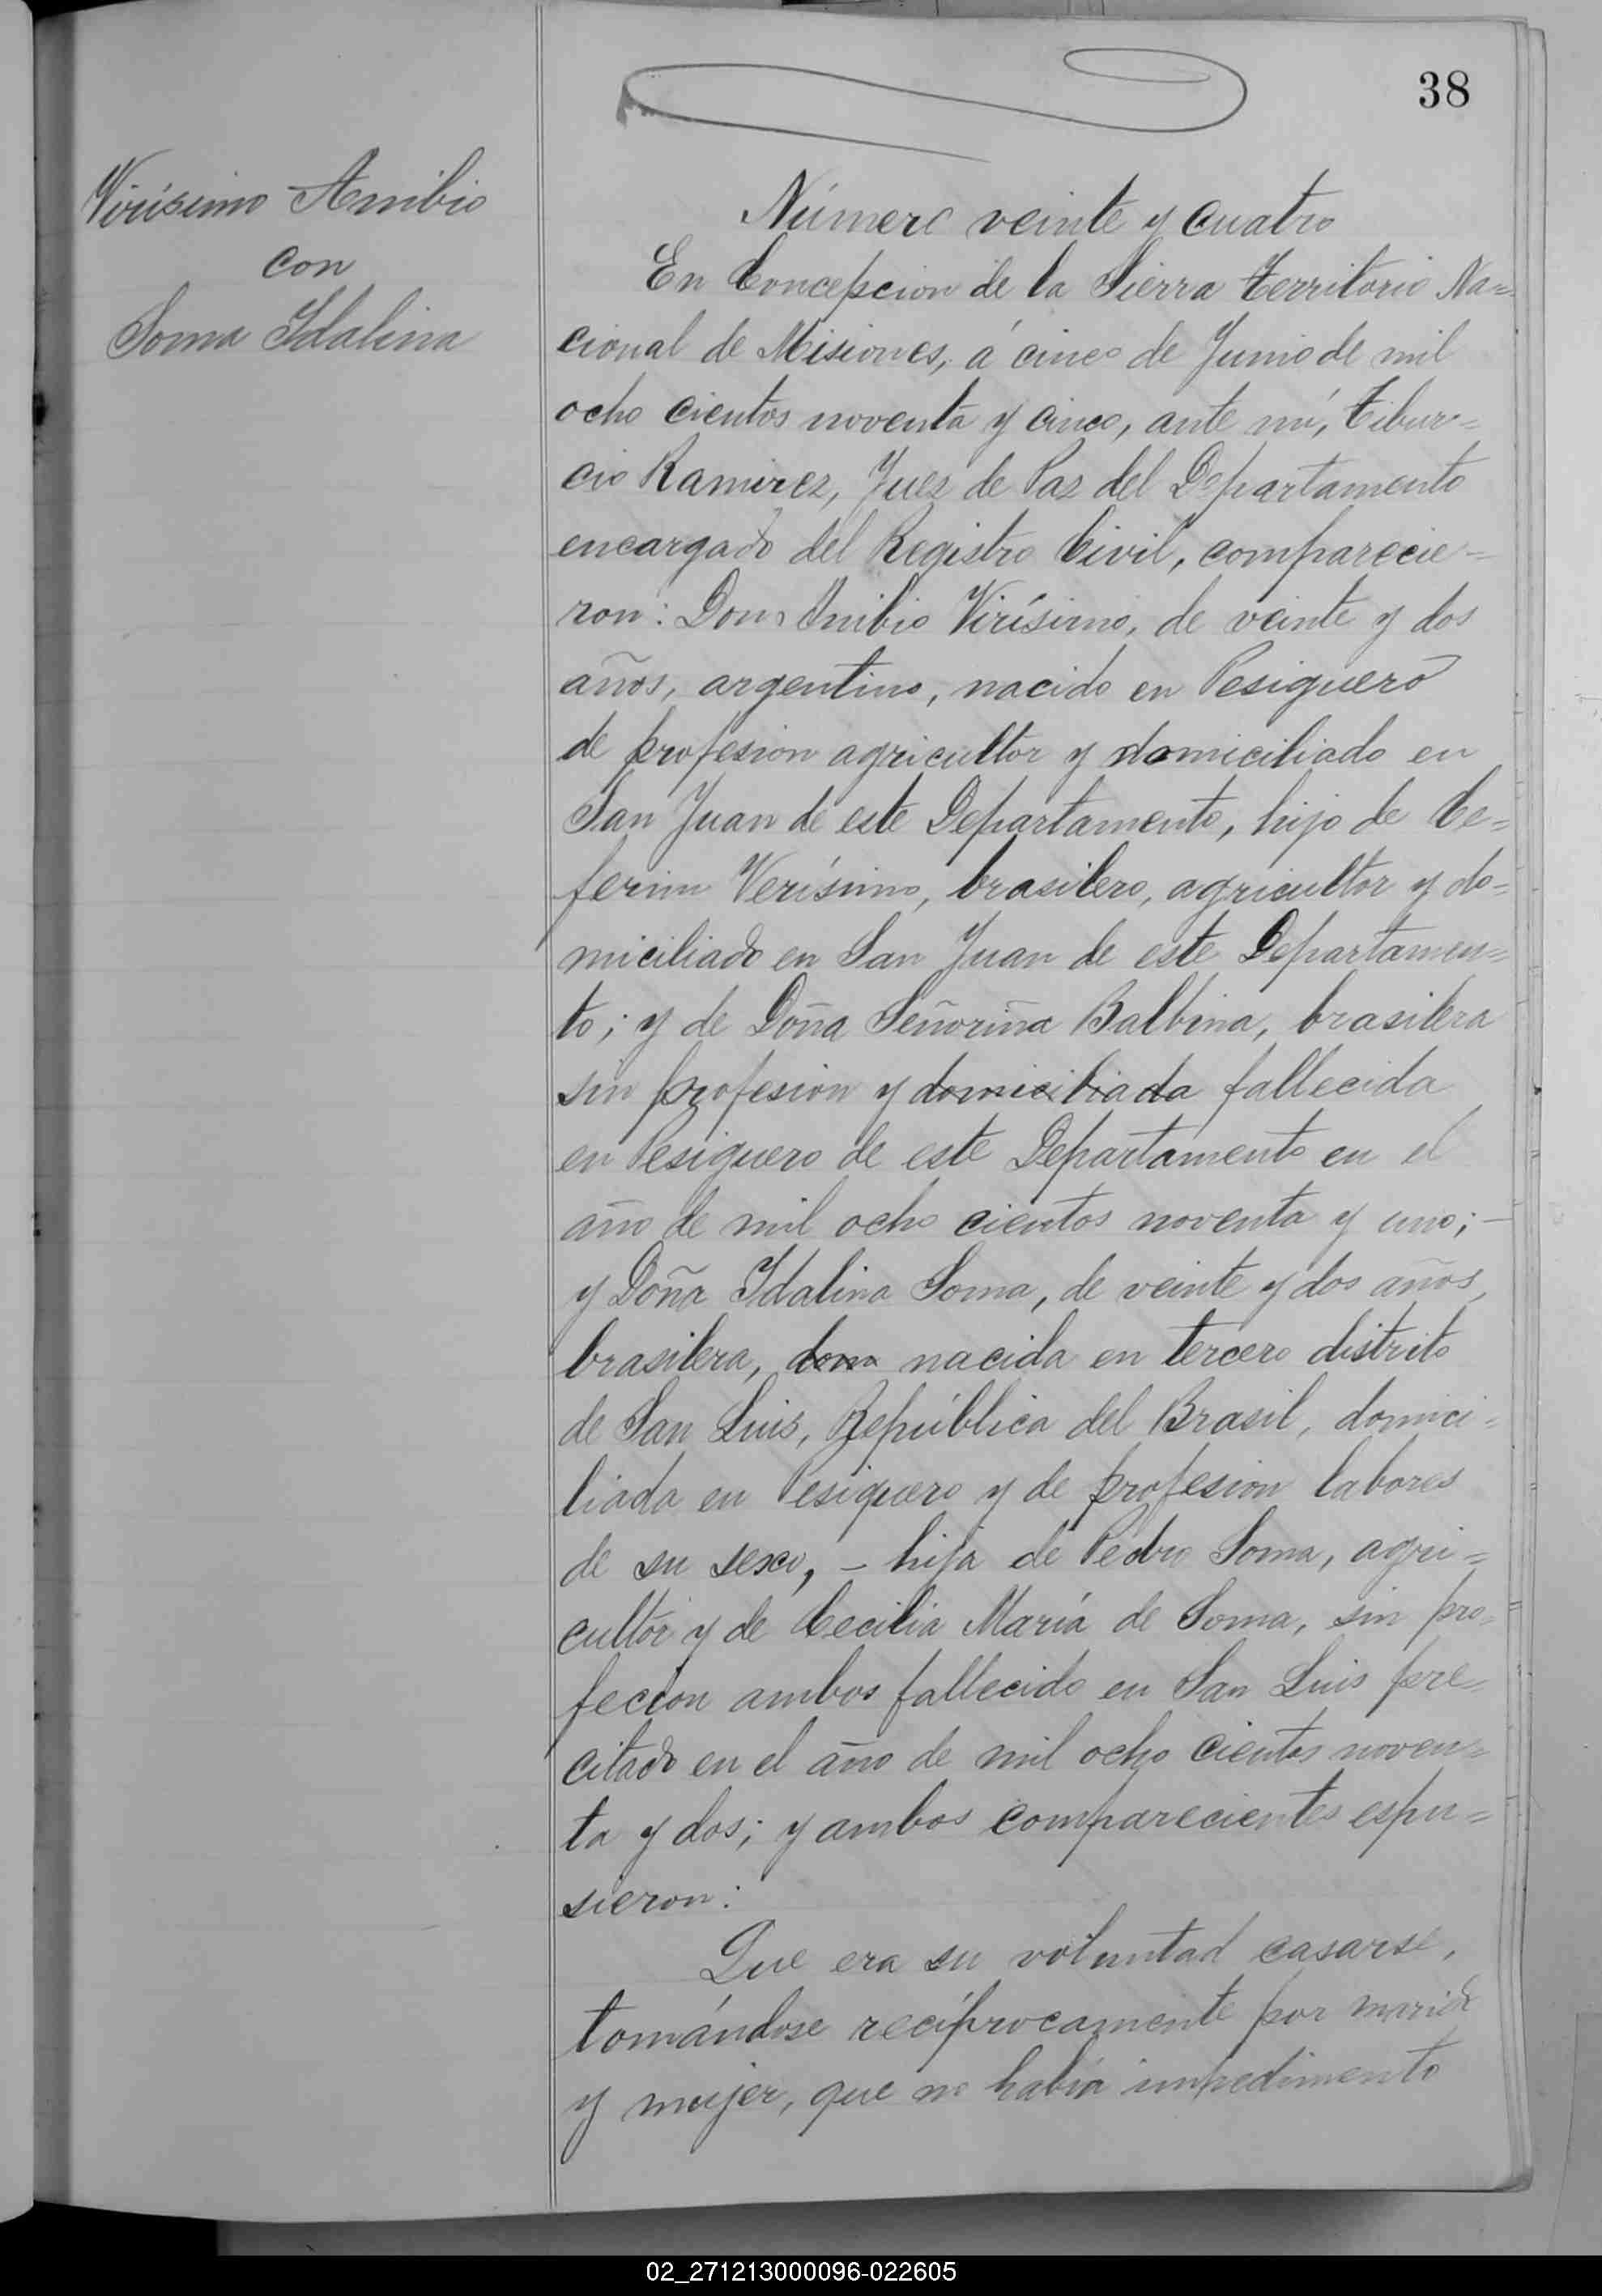 38
Virísimo Anibio
con
Soma Idalina
Número veinte y cuatro
En Concepcion de la Sierra territorio Na=
cional de Misiones, á cinco de Junio de mil
ocho cientos noventa y cinco, ante mí, Tibur=
cio Ramirez, Juez de Paz del Departamento
encargado del Registro Civil, comparecie=
ron: Don Anibio Virísimo, de veinte y dos
años, argentino, nacido en Pesiguero
de profesion agricultor y domiciliado en
San Juan de este Departamento, hijo de Ce=
ferino Verísimo, brasilero, agricultor y do=
miciliado en San Juan de este Departamen=
to; y de Doña Señoriña Balbina, brasilera
sin profesion y domiciliada fallecida
en Pesiguero de este Departamento en el
año de mil ocho cientos noventa y uno; -
y Doña Idalina Soma, de veinte y dos años,
brasilera, dom nacida en tercero distrito
de San Luis, República del Brasil, domici=
liada en Pesiguero y de profesion labores
de su sexo, - hija de Pedro Soma, agri=
cultor y de Cecilia María de Soma, sin pro=
fecion ambos fallecido en San Luis pre=
citado en el año de mil ocho cientos noven=
ta y dos; y ambos comparecientes espu=
sieron:
Que era su voluntad casarse,
tomándose recíprocamente por marido
y mujer, que no había impedimento
02_271213000096-022605